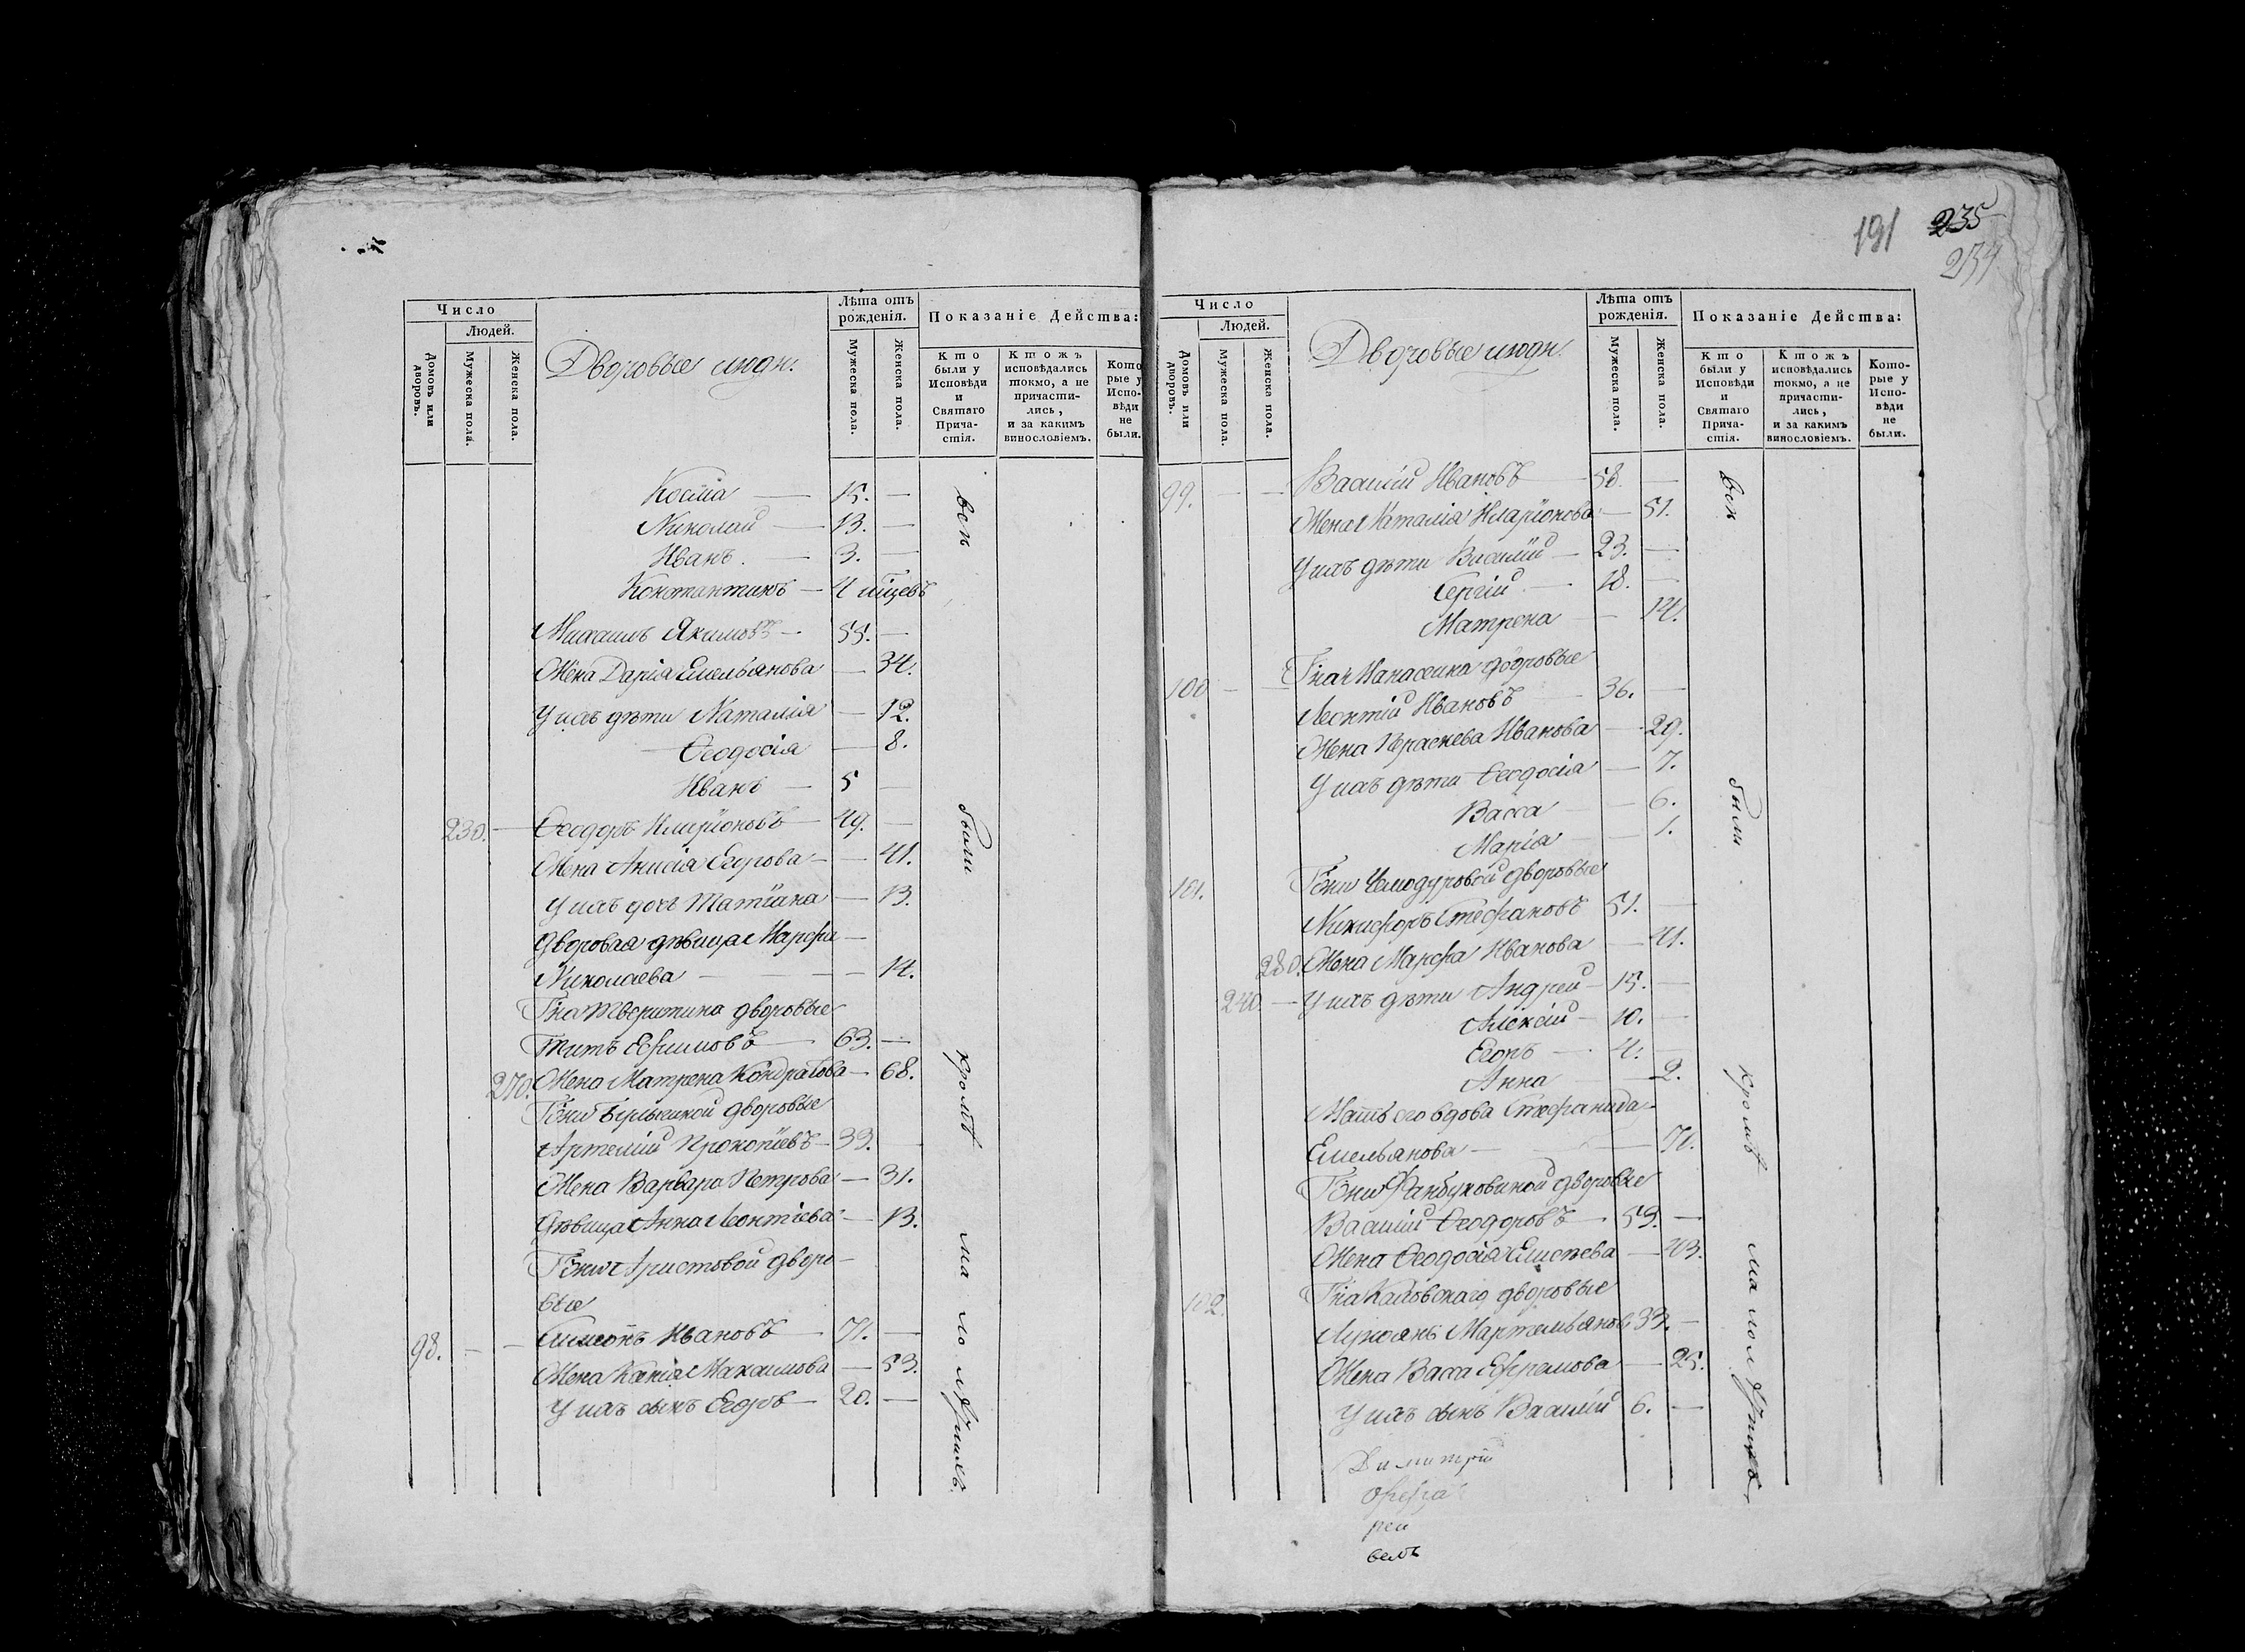 Число
Людей.
Домовъ или дворовъ.
Мужеска пола.
Женска пола.
Дворовые люди.
Лѣта отъ рожденія.
Мужеска пола.
Женска пола.
Показаніе Действа:
Кто были у Исповѣди и Святаго Прича-стія.
Ктожъ исповѣдались токмо, а не причасти-лись, и за какимъ винословіемъ.
Кото-рые у Испо-вѣди не были.
Косма — 15. —
Николай — 13. —
Иванъ. — 3. —
Константинъ — 4 мѣцевъ
Михаилъ Якимовъ — 55. —
Жена Дарія Емельянова — 34.
У ихъ дѣти Наталія — 12.
Ѳеодосія — 8.
Иванъ — 5 —
230. — Ѳеодоръ Иларіоновъ — 49. —
Жена Анисія Егорова — — 41.
У ихъ дочь Татіана — 13.
Дворовая дѣвица Марфа —
Николаева — — 14.
Гна Тверитина дворовые
Титъ Ефимовъ — 63. —
270. Жена Матрена Кондратова — 68.
Гжи дворовые
Артемій Прокопіевъ — 39. —
Жена Варвара Петрова — 31.
Дѣвица Анна Леонтіева — 13.
Гжи Аристовой дворо-
вые
98. — — Симеонъ Ивановъ — 71. —
Жена Ксенія Максимова — 53.
У ихъ сынъ Егоръ — 20. —
вси
были
кромѣ
малолѣтнихъ.
191
235
234
Число
Людей.
Домовъ или дворовъ.
Мужеска пола.
Женска пола.
Дворовые люди.
Лѣта отъ рожденія.
Мужеска пола.
Женска пола.
Показаніе Действа:
Кто были у Исповѣди и Святаго Прича-стія.
Ктожъ исповѣдались токмо, а не причасти-лись, и за какимъ винословіемъ.
Кото-рые у Испо-вѣди не были.
99. — — Василій Ивановъ — 58. —
Жена Наталія Иларіонова — 51.
У ихъ дѣти Василій — 23. —
Сергій — 18. —
Матрена — 14.
дворовые
100 — — Леонтій Ивановъ — 36. —
Жена Параскева Иванова — 29.
У ихъ дѣти Ѳеодосія — 7.
Васса — 6.
Марія — 1.
101. Гжи Чемодуровой дворовые
Никифоръ Стефановъ 51. —
280. Жена Марфа Иванова — 41.
240. — У ихъ дѣти Андрей — 15. —
Алексій — 10. —
Егоръ — 4. —
Анна — 2.
Мать его вдова Стефанида
Емельянова — — 71.
Гжи дворовые
Василій Ѳеодоровъ — 59. —
Жена Ѳеодосія Елисѣева — 43.
102. Гна дворовые
Лукіанъ Мартемьяновъ 33. —
Жена Васса Ефремова — 25.
У ихъ сынъ Василій 6. —
Димитрій
вси
были
кромѣ
малолѣтнихъ.